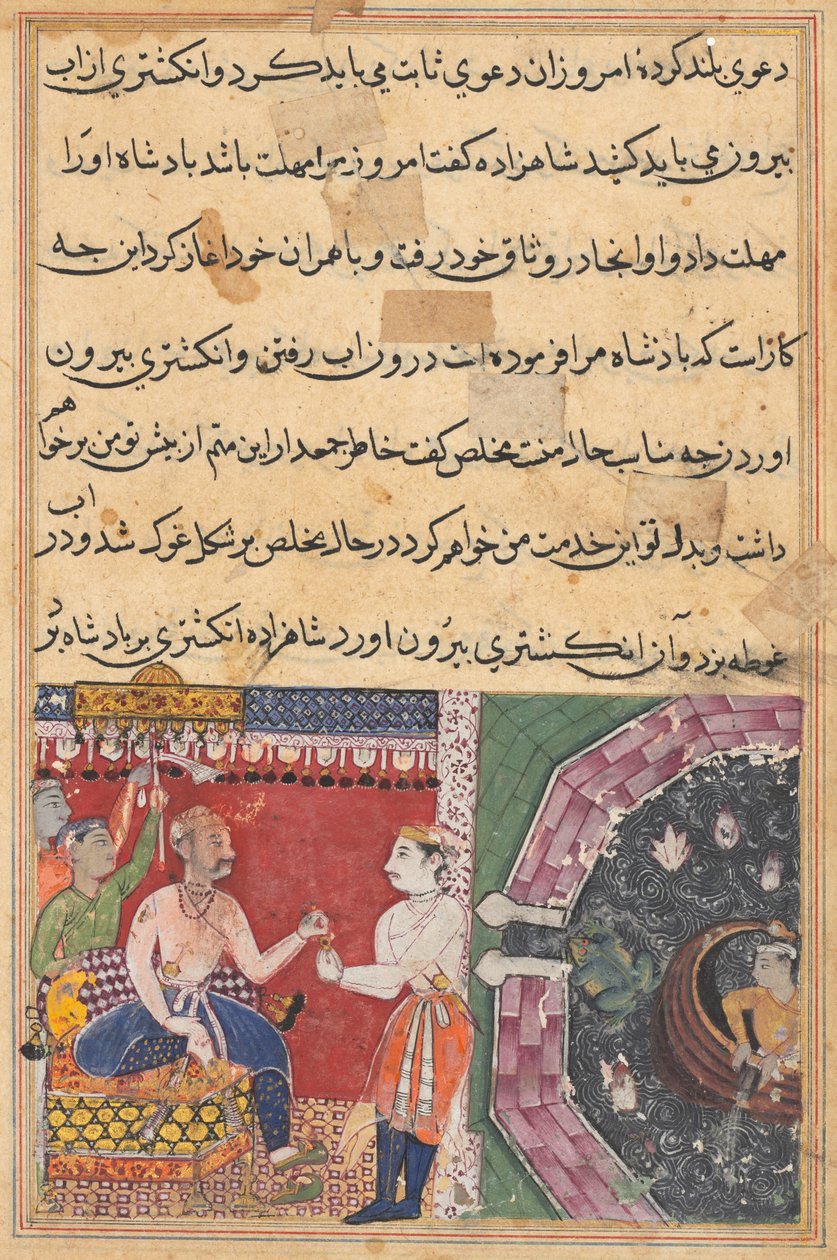 دعوی بلند کردهٔ امروز ان دعوی ثابت می باید کرد و انکشتری از اب
بیرون می باید کشید شاهزاده کفت امروز مرا مهلت باشد بادشاه اورا
مهلت داد و او انجا در وثاق خود رفت و با همران خود اغاز کرد این جه
کار است که بادشاه مرا فرموده است درون اب رفتن و انکشتری بیرون
اوردن جه مناسب حال منست مخلص کفت خاطر جمع دار این مهم از پیش تو من بر خواهم
داشت و بدل تو این خدمت من خواهم کرد در حال مخلص بر شکل غوک شد و در اب
غوطه بزد و آن انکشتری بیرون اورد شاهزاده انکشتری بر بادشاه برد